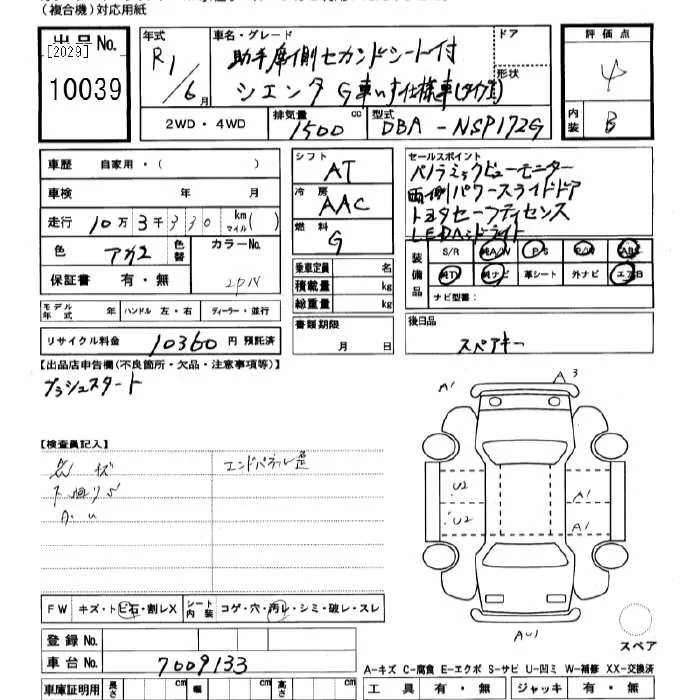 (複合機)対応用紙
出品No.
[2029]
10039
年式
R1/6月
車名・グレード
助手席側セカンドシート付
シエンタ G 車いす仕様車(タイプI)
ドア
形状
2WD・4WD
排気量
1500 cc
型式
DBA-NSP172G
評価点
4
内装
B
車歴 自家用・( )
車検 年 月
走行 10万3千330 km マイル( )
色 アカ2 色替
カラーNo.
保証書 有・無
モデル年式 年 ハンドル 左・右 ディーラー・並行
リサイクル料金 10360円 預託済
シフト
AT
冷房
AAC
燃料
G
乗車定員 名
積載量 kg
総重量 kg
書類期限
月 日
セールスポイント
パノラミックビューモニター
両側パワースライドドア
トヨタセーフティセンス
LEDヘッドライト
装備品
S/R 純A/W P/S P/W ABS
純TV 純ナビ 革シート 外ナビ エアB
ナビ型番:
後日品
スペアキー
【出品店申告欄(不良箇所・欠品・注意事項等)】
プッシュスタート
【検査員記入】
エンドパネル歪
A.U
FW キズ・トビ石・割レX シート内装 コゲ・穴・汚レ・シミ・破レ・スレ
登録No.
車台No. 7009133
車庫証明用 長さ cm 幅 cm 高さ cm
A1
A3
U2
U2
A1
A1
AU1
スペア
A-キズ C-腐食 E-エクボ S-サビ U-凹ミ W-補修 XX-交換済
工具 有・無 ジャッキ 有・無